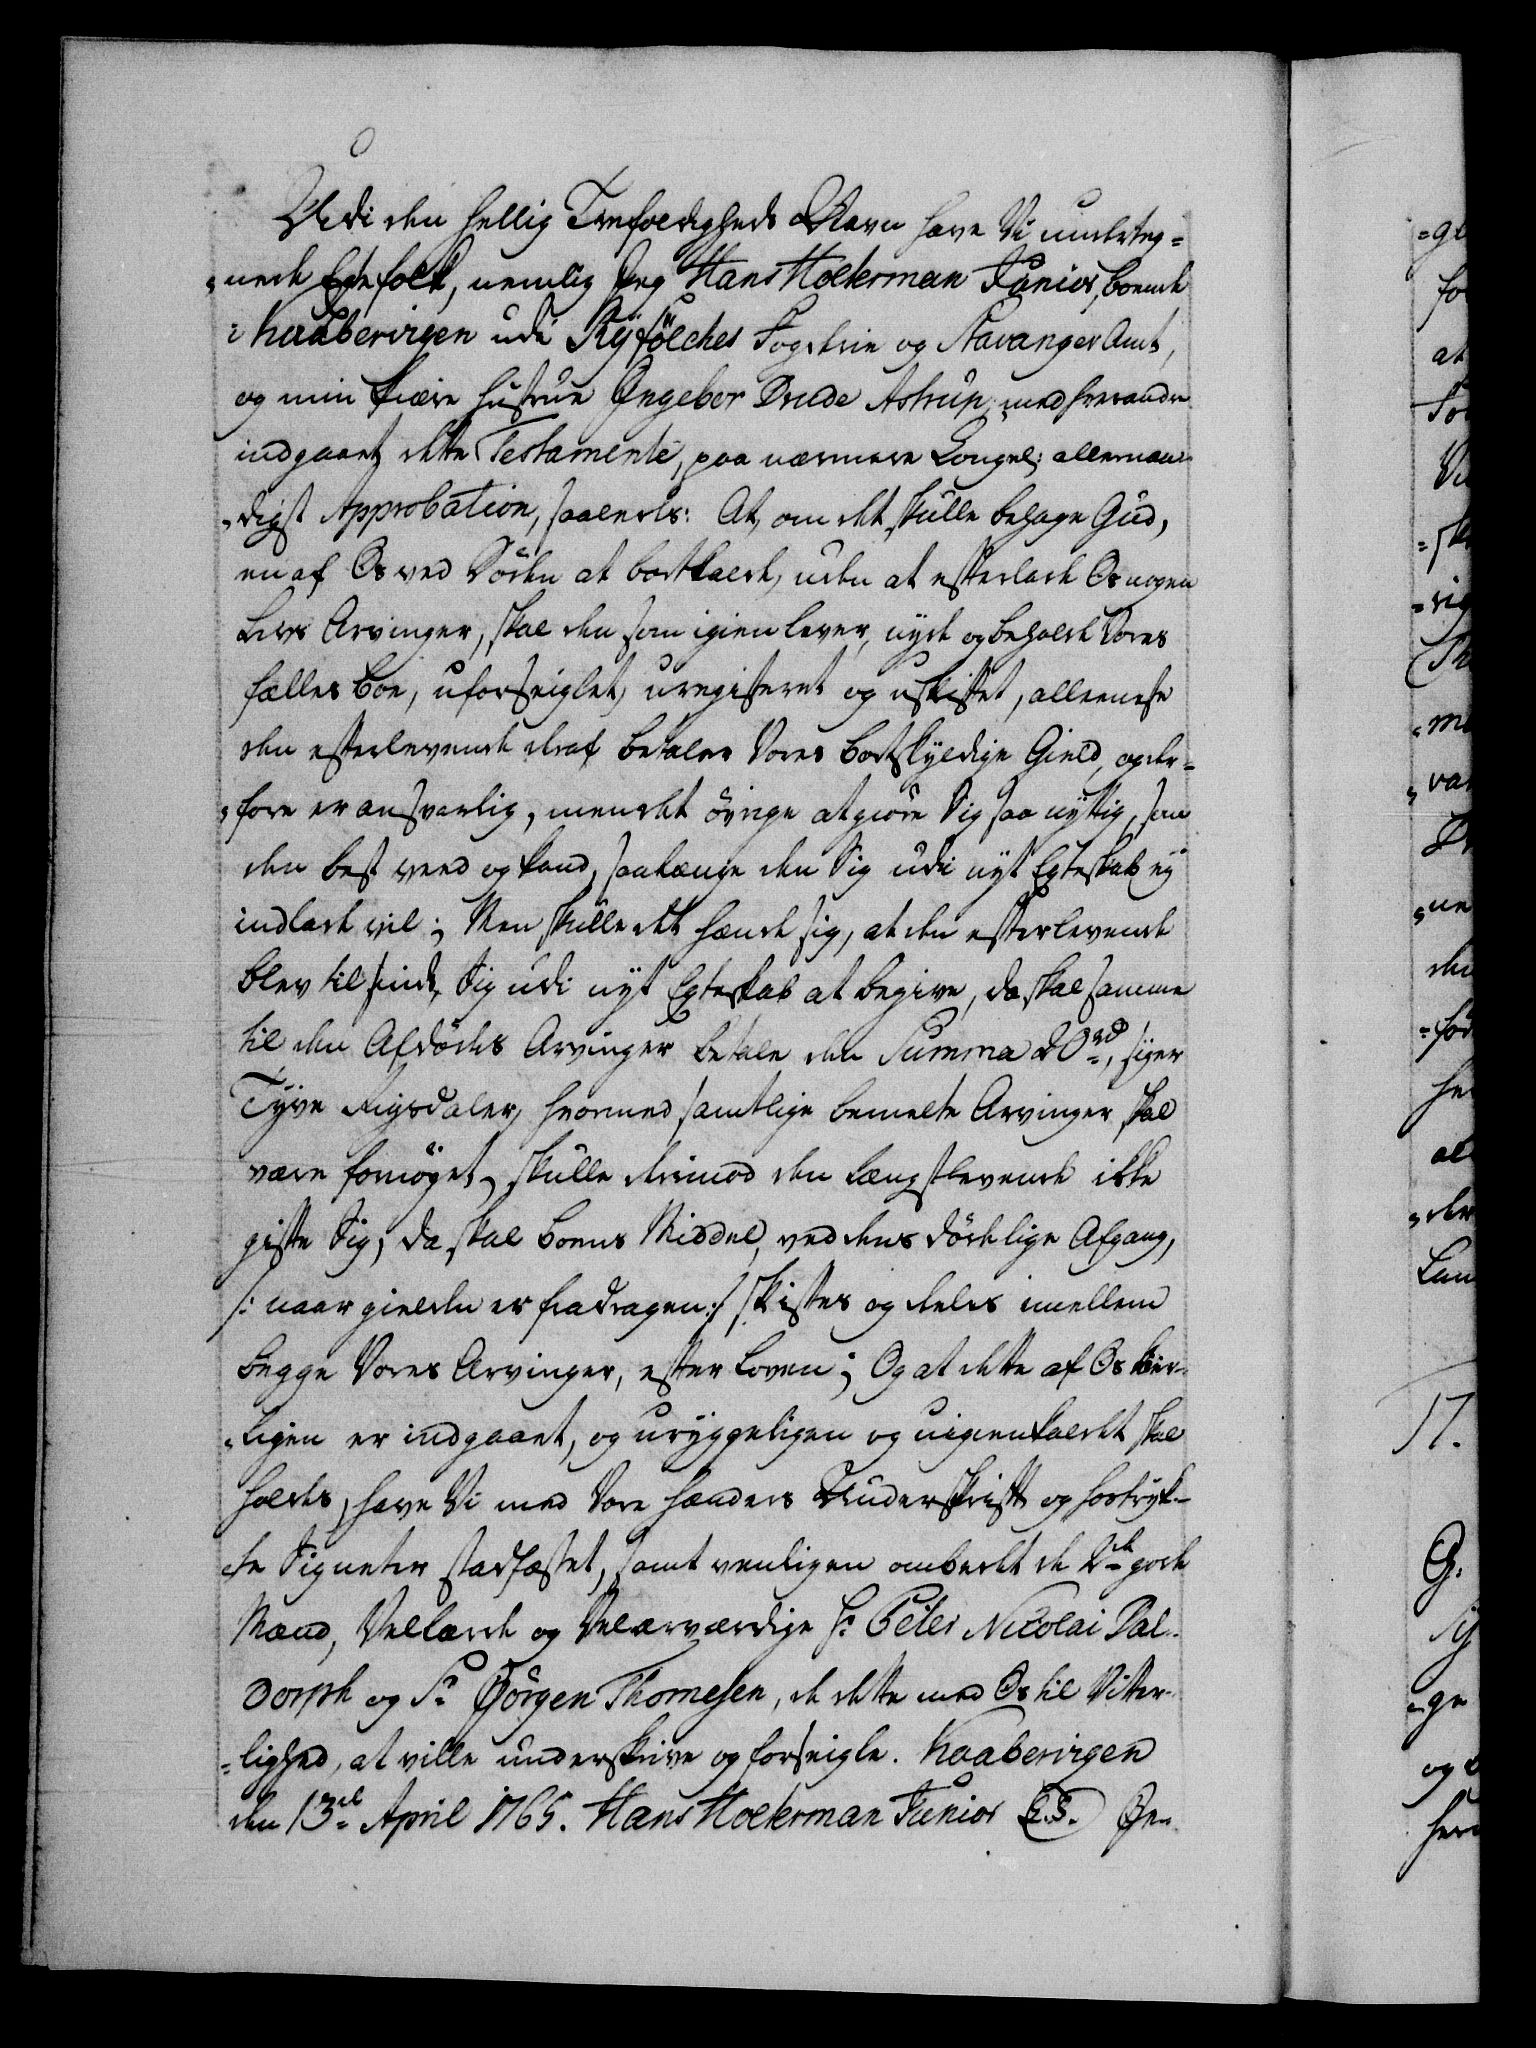 Udi den hellig Trefoldigheds Navn have Vi underteg-
nede Egtefolk, nemlig Jeg Hans Holterman Junior, boende
i Kaabervigen udi Ryfölches Fogderie og Stavanger Amt,
og min kiære Hustrue Ingebor Drude Astrup, med hverandre
indgaaet dette Testamente, paa nærmere Kongel: allernaa-
digst Approbation, saaledes: At, om det skulle behage Gud,
en af Os ved Döden at bortkalde, uden at efterlade Os nogen
Livs Arvinger, skal den som igien lever, nyde og beholde Vores
fælles Boe, uforseiglet, uregisteret og uskiftet, alleeneste
den efterlevende deraf betaler Vores bortskyldige Gield, og der-
fore er ansvarlig, men det övrige at giøre Sig saa nyttig, som
den best veed og kand, saalænge den Sig udi nyt Egteskab ey
indlade vil; Men skulle det hænde sig, at den efterlevende
blev til sinds, Sig udi nyt Egteskab at begive, da skal samme
til den Afdödes Arvinger betale den Summa 20 rd, siger
Tyve Rigsdaler, hvormed samtlige bemelte Arvinger skal
være fornöyet, skulle derimod den længstlevende ikke
gifte Sig; da skal Boens Middel, ved dens dödelige Afgang,
/: naar gielden er fradragen :/ skiftes og deles imellem
begge Vores Arvinger, efter Loven; Og at dette af Os kier-
ligen er indgaaet, og uryggeligen og uigienkaldet skal
holdes, have Vi med Vore Hænders Underskrift og hostryk-
te Signeter stadfæstet, samt venligen ombedet de 2de gode
Mænd, Vellærde og Velærværdige Hr. Peter Nicolai Dal-
dorph og Sr. Jörgen Thomesen, de dette med Os til Vitter-
lighed, at ville underskrive og forseigle. Kaabervigen
den 13de April 1765. Hans Holterman Junior (L.S.) In-